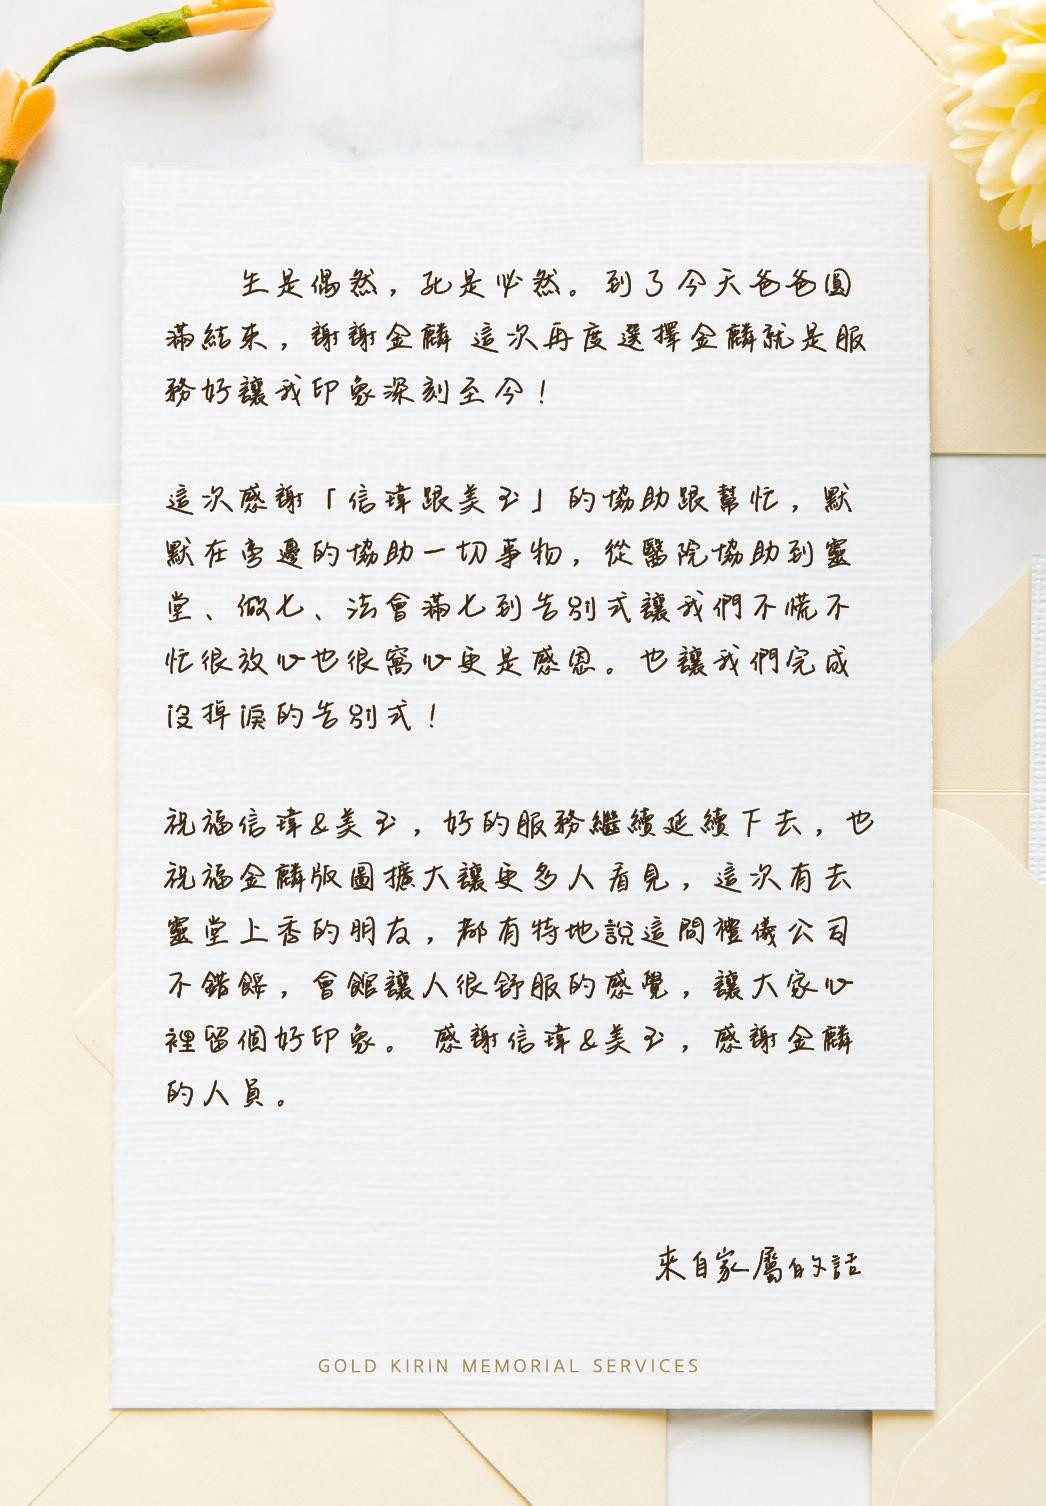 生是偶然，死是必然。到了今天爸爸圓
滿結束，謝謝金麟 這次再度選擇金麟就是服
務好讓我印象深刻至今！
這次感謝「信瑋跟美玉」的協助跟幫忙，默
默在旁邊的協助一切事物，從醫院協助到靈
堂、做七、法會滿七到告別式讓我們不慌不
忙很放心也很窩心更是感恩。也讓我們完成
沒掉淚的告別式！
祝福信瑋&美玉，好的服務繼續延續下去，也
祝福金麟版圖擴大讓更多人看見，這次有去
靈堂上香的朋友，都有特地說這間禮儀公司
不錯餒，會館讓人很舒服的感覺，讓大家心
裡留個好印象。 感謝信瑋&美玉，感謝金麟
的人員。
來自家屬的話
GOLD KIRIN MEMORIAL SERVICES